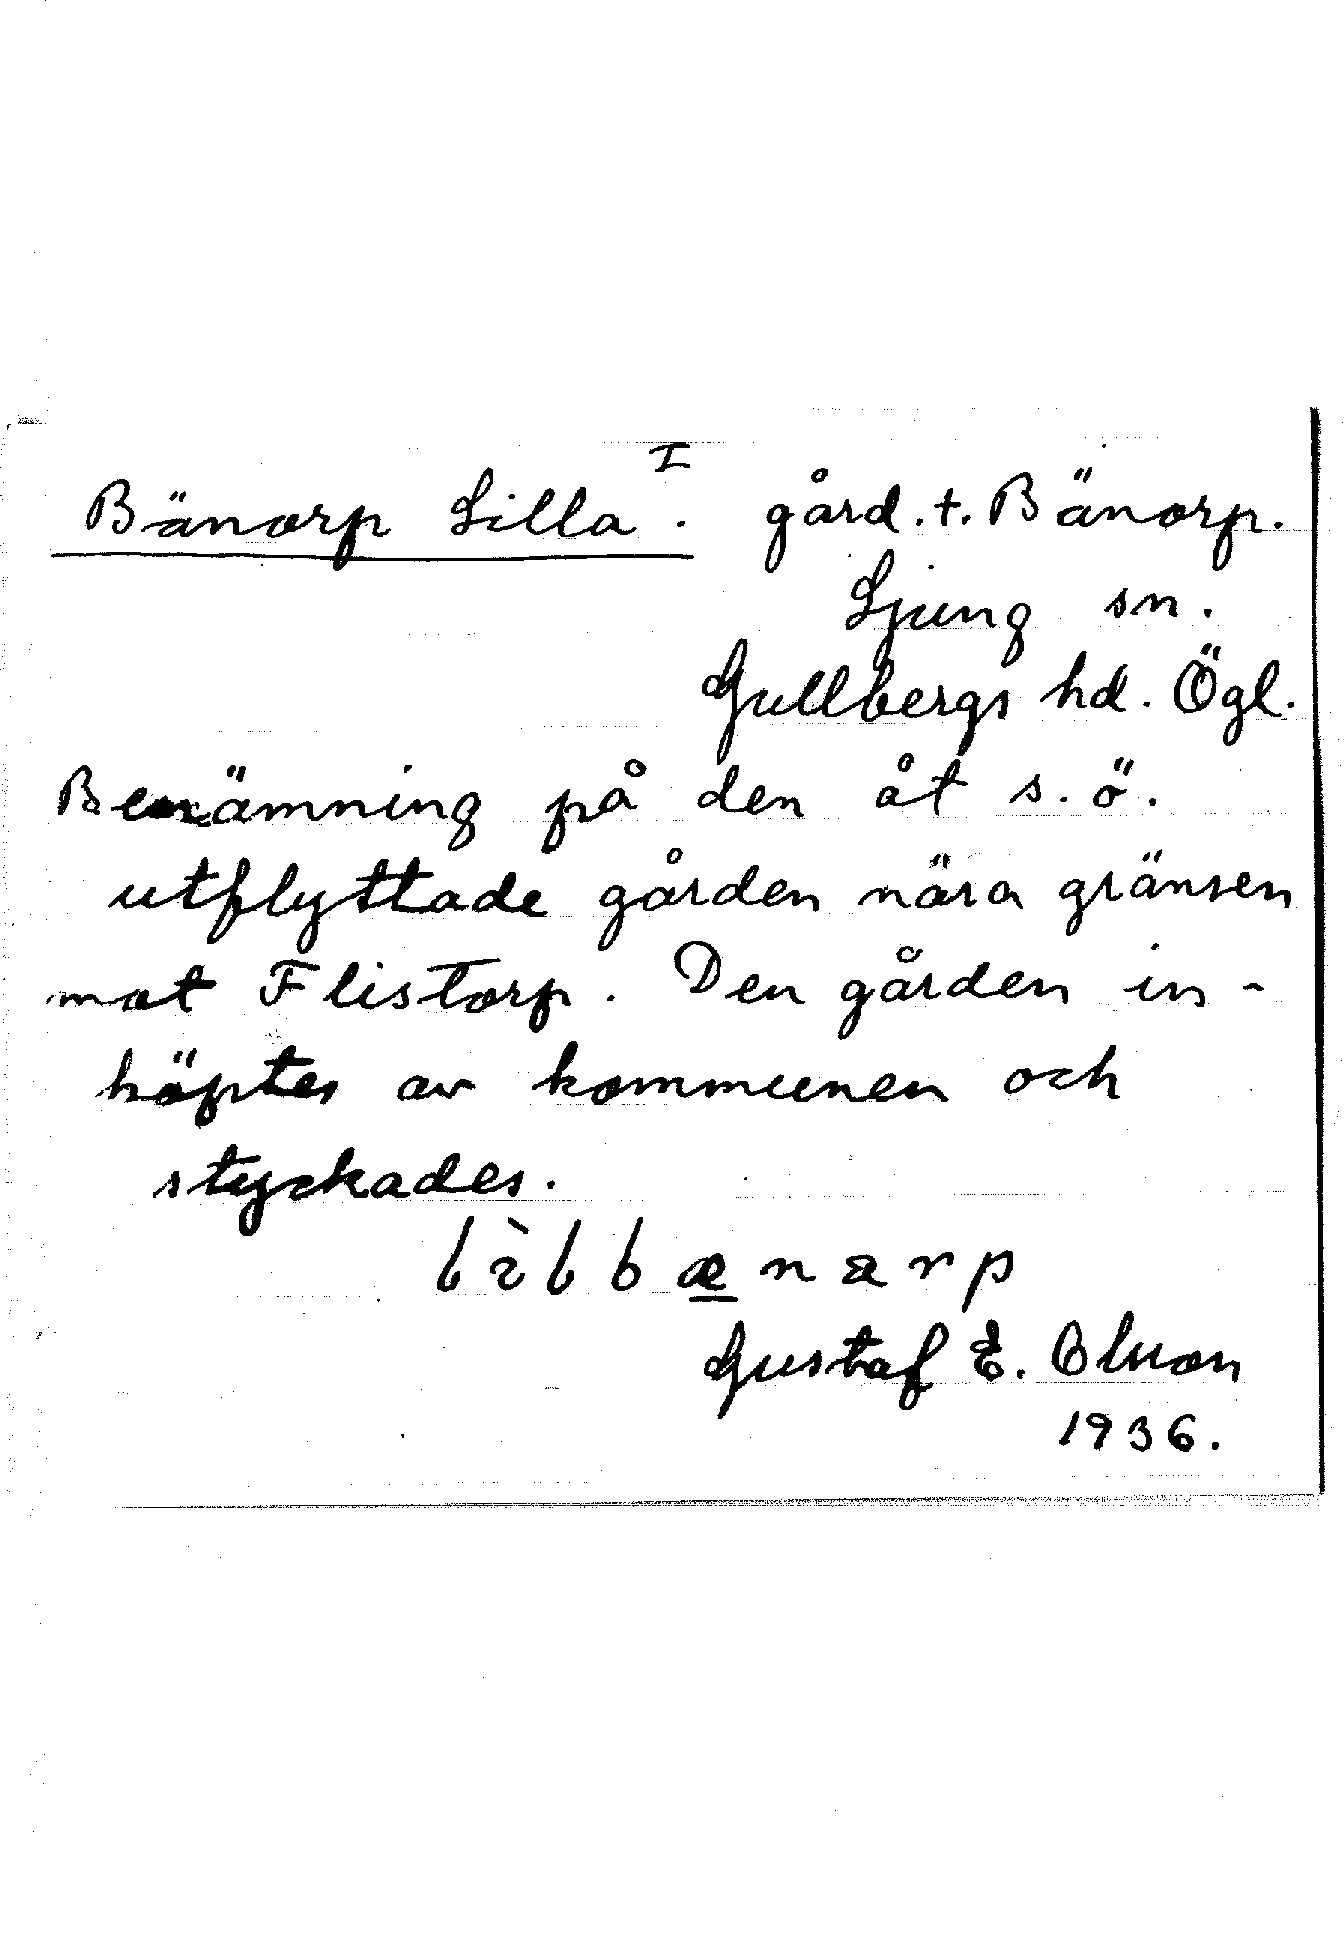 I
Bänorp Lilla. gård. t. Bänorp.
Ljung sn.
Gullbergs hd. Ögl.
Benämning på den åt s. ö.
utflyttade gården nära gränsen
mot Flistorp. Den gården in-
köptes av kommunen och
styckades.
Gustaf E. Olsson
1936.